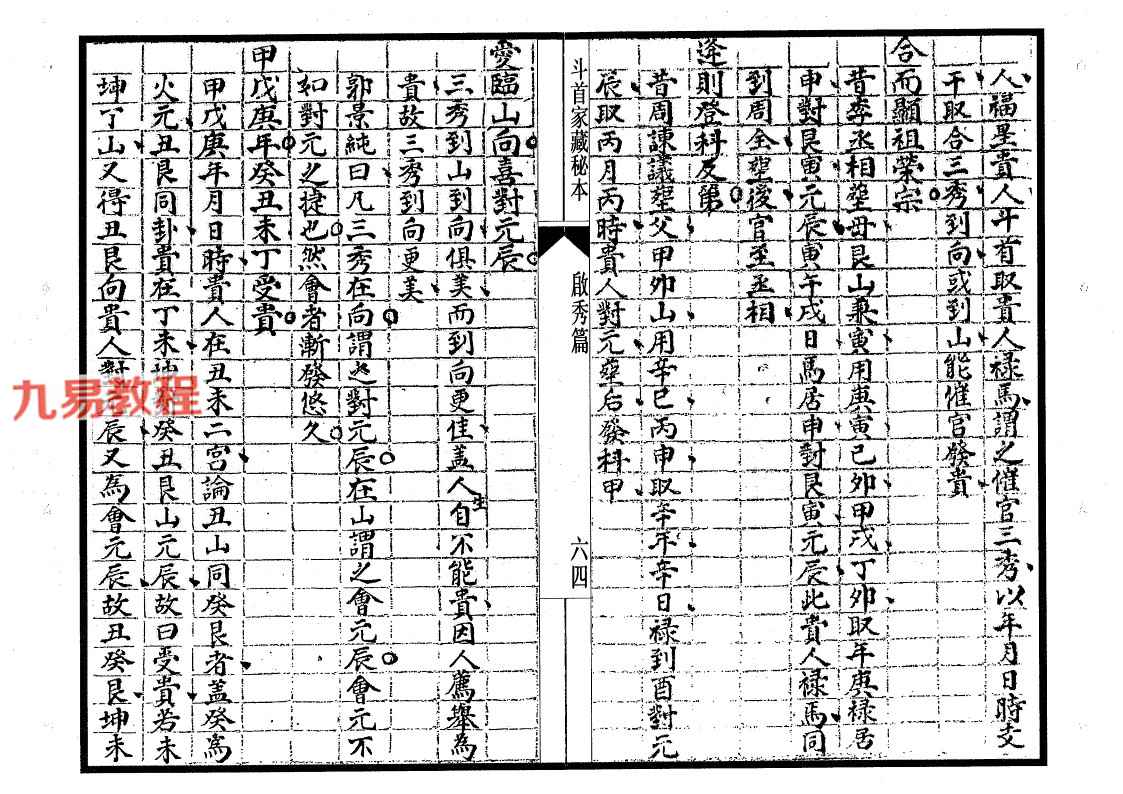 人福星貴人斗首取貴人祿馬謂之催官三秀以年月日時支
干取合三秀到向或到山能催官發貴
合而顯祖榮宗
昔李丞相塟母艮山兼寅用庚寅己卯甲戌丁卯取年庚祿居
申對艮寅元辰寅午戌日馬居申對艮寅元辰此貴人祿馬同
到周全塟後官至丞相
逢則登科及第
昔周諫議塟父甲卯山用辛巳丙申取辛年辛日祿到酉對元
辰取丙月丙時貴人對元塟后發科甲
斗首家藏秘本
啟秀篇
六四
愛臨山向喜對元辰
三秀到山到向俱美而到向更佳盖人生自不能貴因人薦舉為
貴故三秀到向更美
郭景純曰凡三秀在向謂之對元辰在山謂之會元辰會元不
如對元之捷也然會者漸發悠久
甲戊庚年癸丑未丁受貴
甲戊庚年月日時貴人在丑未二宮論丑山同癸艮者盖癸為
火元丑艮同卦貴在丁未坤癸丑艮山元辰故曰受貴若未
坤丁山又得丑艮向貴人對元辰又為會元辰故丑癸艮坤未
九易教程